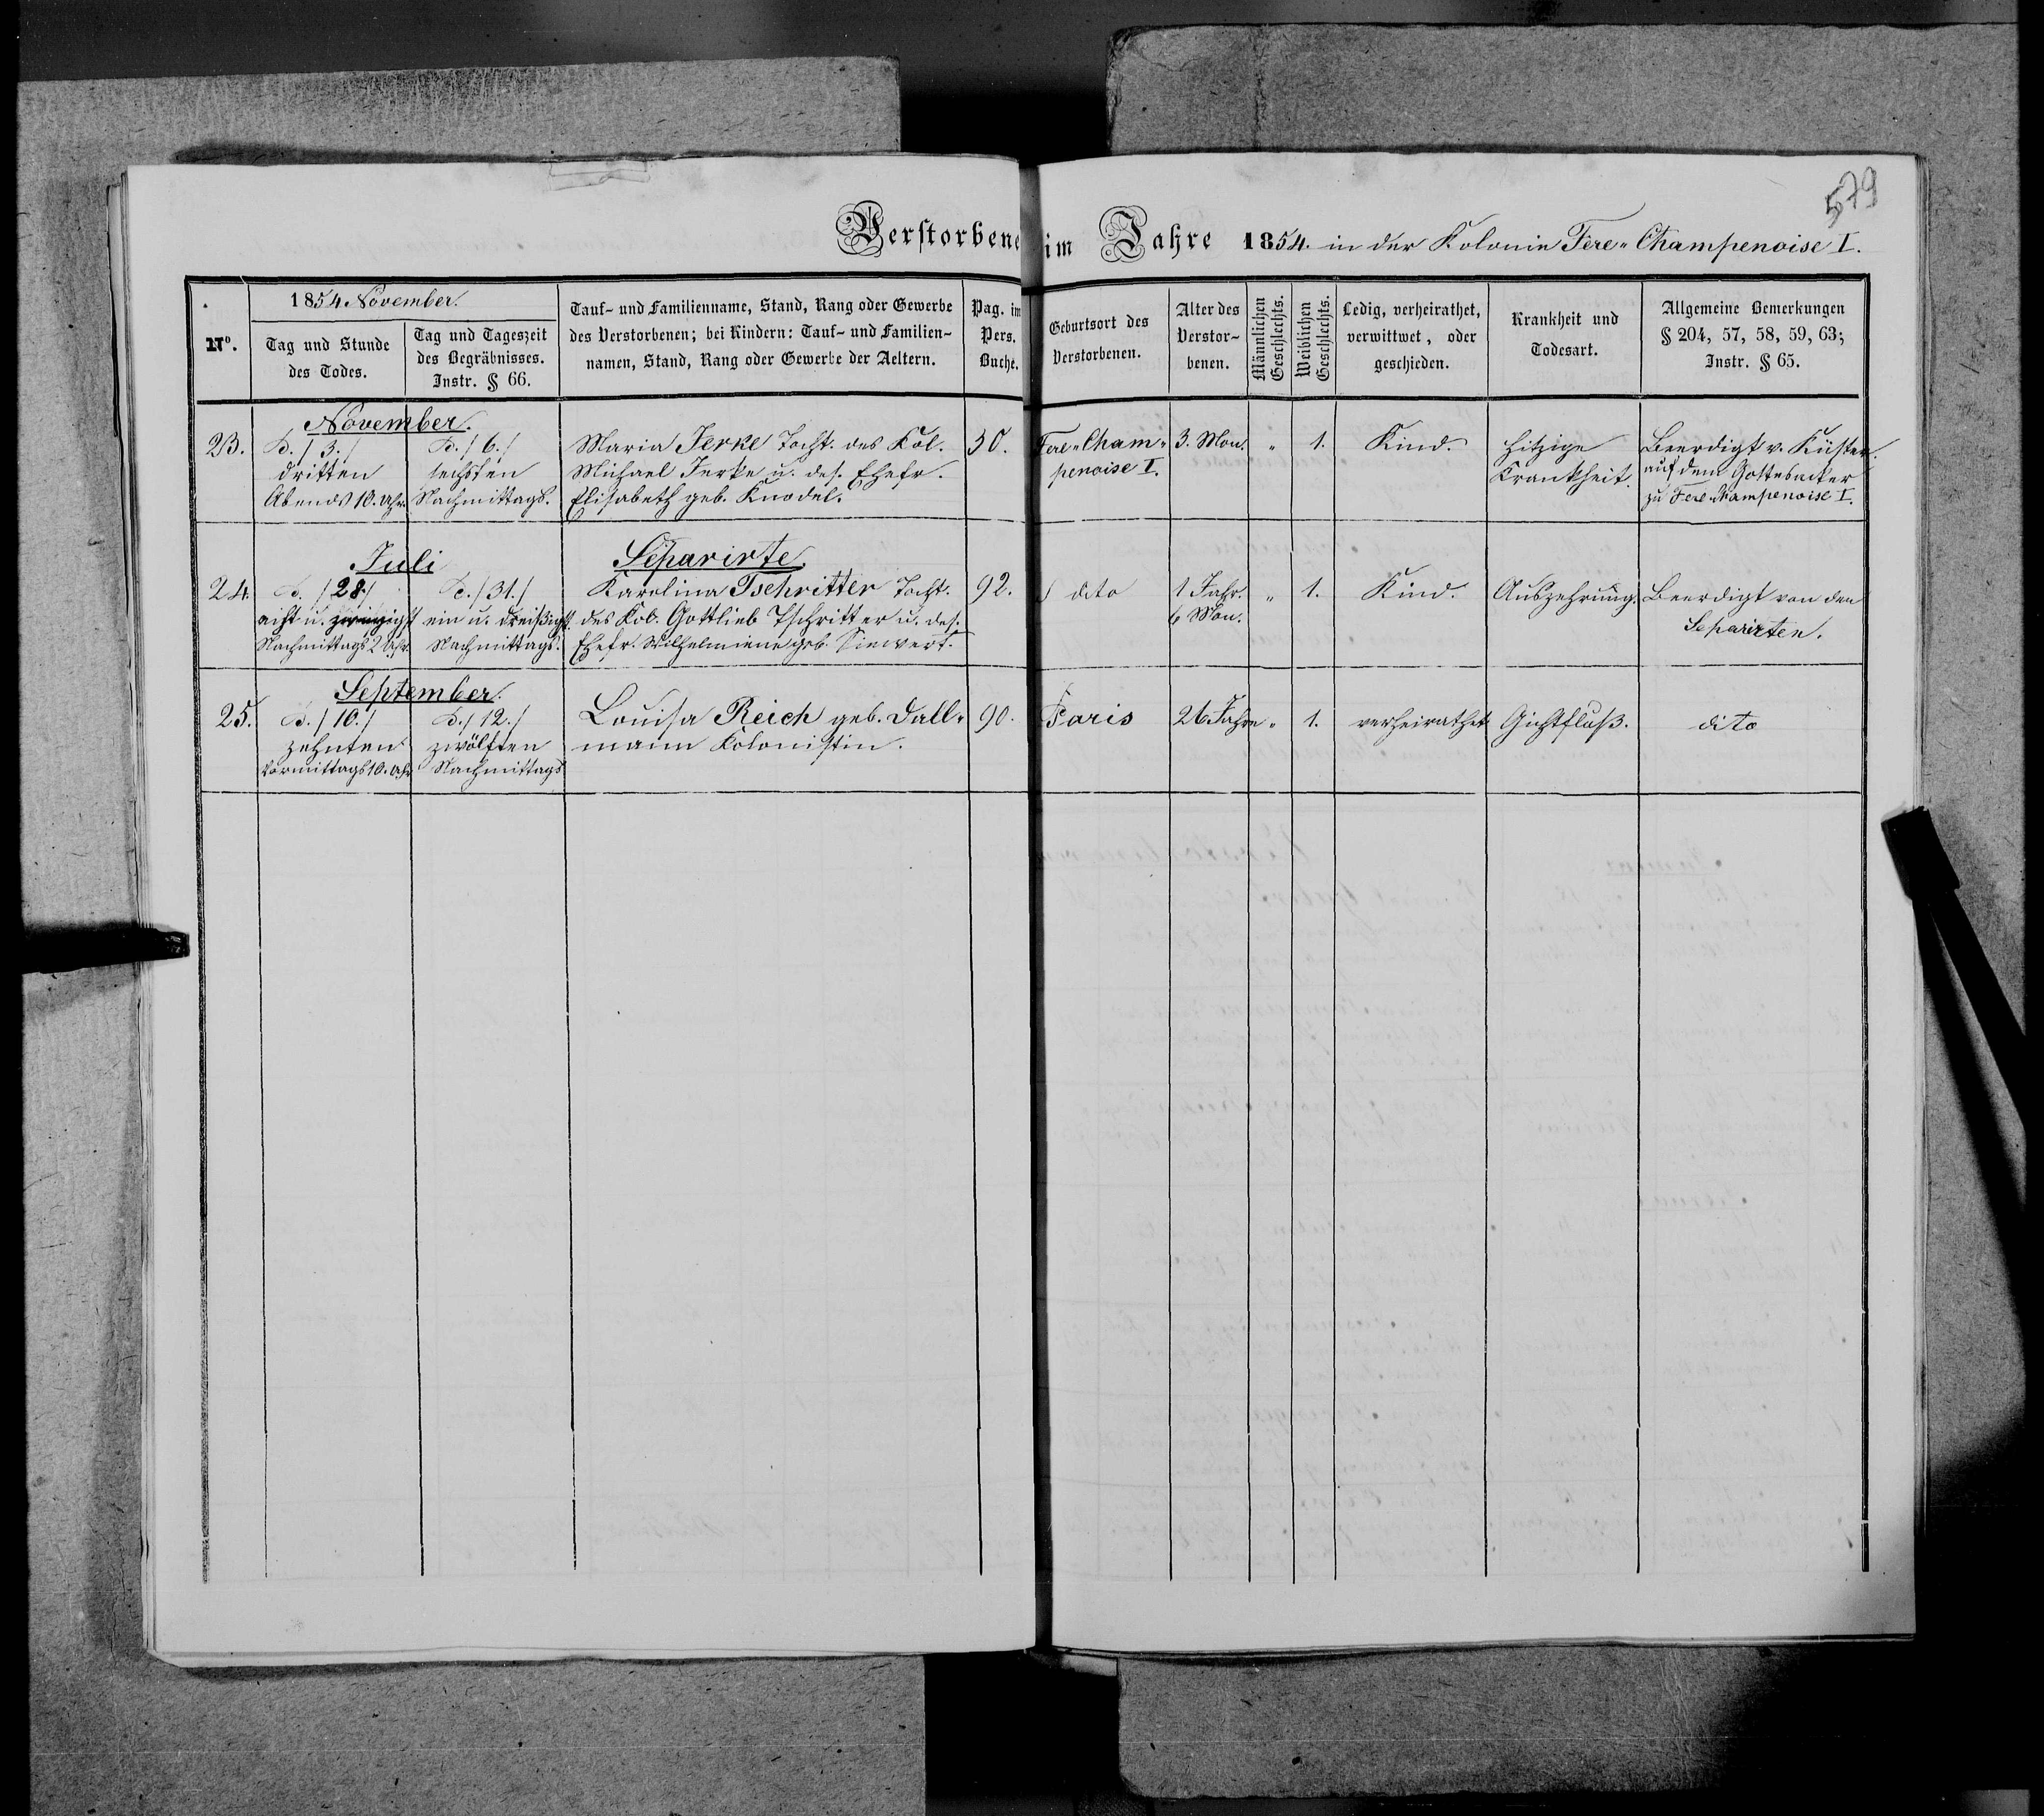 579
Verstorbene im Jahre 1854. in der Kolonie Fere-Champenoise I.
No.
1854 November.
Tag und Stunde
des Todes.
Tag und Tageszeit
des Begräbnisses.
Instr. § 66.
Tauf- und Familienname, Stand, Rang oder Gewerbe
des Verstorbenen; bei Kindern: Tauf- und Familien-
namen, Stand, Rang oder Gewerbe der Aeltern.
Pag. im
Pers.
Buche.
Geburtsort des
Verstorbenen.
Alter des
Verstor-
benen.
Männlichen
Geschlechts.
Weiblichen
Geschlechts.
Ledig, verheirathet,
verwittwet, oder
geschieden.
Krankheit und
Todesart.
Allgemeine Bemerkungen
§ 204, 57, 58, 59, 63;
Instr. § 65.
November.
23.
D. /3./
dritten
Abends 10. Uhr.
D. /6./
sechsten
Nachmittags.
Maria Jerke Tocht. des Kol.
Michael Jerke u. des. Ehefr.
Elisabeth geb. Knodel.
30.
Fere-Cham-
penoise I.
3. Mon.
"
1.
Kind.
Hitzige
Krankheit.
Beerdigt v. Küster.
auf dem Gottesacker
zu Fere-Champenoise I.
Juli
Separirte.
24.
D. /28./
acht u. zwanzigst
Nachmittags 2 Uhr.
D. /31./
ein u. dreißigst.
Nachmittags.
Karolina Tschritter Tocht.
des Kol. Gottlieb Tschritter u. des.
Ehefr. Wilhelmiene geb. Siewert.
92.
dito
1 Jahr.
6 Mon.
"
1.
Kind.
Auszehrung.
Beerdigt von den
Separirten.
September.
25.
D. /10./
zehnten
Vormittags 10. Uhr
D. /12./
zwölften
Nachmittags
Louisa Reich geb. Dall-
mann Kolonistin.
90.
Paris
26 Jahre
"
1.
verheirathet
Gichtfluß.
dito